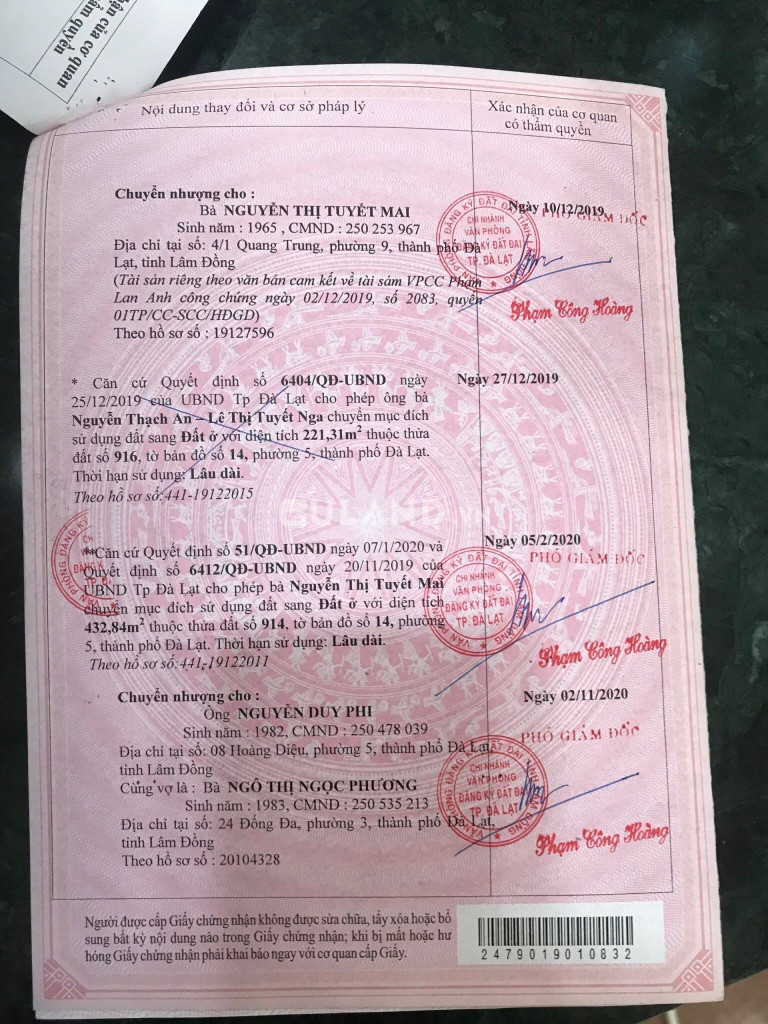 hận của cơ quan
ẩm quyền
Nội dung thay đổi và cơ sở pháp lý
Xác nhận của cơ quan
có thẩm quyền
Chuyển nhượng cho :
Bà NGUYỄN THỊ TUYẾT MAI
Sinh năm : 1965 , CMND : 250 253 967
Địa chỉ tại số: 4/1 Quang Trung, phường 9, thành phố Đà
Lạt, tỉnh Lâm Đồng
(Tài sản riêng theo văn bản cam kết về tài sảm VPCC Phạm
Lan Anh công chứng ngày 02/12/2019, số 2083, quyên
01TP/CC-SCC/HĐGD)
Theo hồ sơ số : 19127596
Ngày 10/12/2019
PHÓ GIÁM ĐỐC
CHI NHÁNH
VĂN PHÒNG
ĐĂNG KÝ ĐẤT ĐAI
TP. ĐÀ LẠT
Phạm Công Hoàng
* Căn cứ Quyết định số 6404/QĐ-UBND ngày
25/12/2019 của UBND Tp Đà Lạt cho phép ông bà
Nguyễn Thạch An – Lê Thị Tuyết Nga chuyển mục đích
sử dụng đất sang Đất ở với diện tích 221,31m² thuộc thửa
đất số 916, tờ bản đồ số 14, phường 5, thành phố Đà Lạt.
Thời hạn sử dụng: Lâu dài.
Theo hồ sơ số:441-19122015
Ngày 27/12/2019
GULAND.VN
**Căn cứ Quyết định số 51/QĐ-UBND ngày 07/1/2020 và
Quyết định số 6412/QĐ-UBND ngày 20/11/2019 của
UBND Tp Đà Lạt cho phép bà Nguyễn Thị Tuyết Mai
chuyển mục đích sử dụng đất sang Đất ở với diện tích
432,84m² thuộc thửa đất số 914, tờ bản đồ số 14, phường
5, thành phố Đà Lạt. Thời hạn sử dụng: Lâu dài.
Theo hồ sơ số:441-19122011
Ngày 05/2/2020
PHÓ GIÁM ĐỐC
CHI NHÁNH
VĂN PHÒNG
ĐĂNG KÝ ĐẤT ĐAI
TP. ĐÀ LẠT
Phạm Công Hoàng
Chuyển nhượng cho :
Ông NGUYỄN DUY PHI
Sinh năm : 1982, CMND : 250 478 039
Địa chỉ tại số: 08 Hoàng Diệu, phường 5, thành phố Đà Lạt,
tỉnh Lâm Đồng
Cùng vợ là : Bà NGÔ THỊ NGỌC PHƯƠNG
Sinh năm : 1983, CMND : 250 535 213
Địa chỉ tại số: 24 Đống Đa, phường 3, thành phố Đà Lạt,
tỉnh Lâm Đồng
Theo hồ sơ số : 20104328
Ngày 02/11/2020
PHÓ GIÁM ĐỐC
CHI NHÁNH
VĂN PHÒNG
ĐĂNG KÝ ĐẤT ĐAI
TP. ĐÀ LẠT
Phạm Công Hoàng
Người được cấp Giấy chứng nhận không được sửa chữa, tẩy xóa hoặc bổ
sung bất kỳ nội dung nào trong Giấy chứng nhận; khi bị mất hoặc hư
hỏng Giấy chứng nhận phải khai báo ngay với cơ quan cấp Giấy.
2479019010832